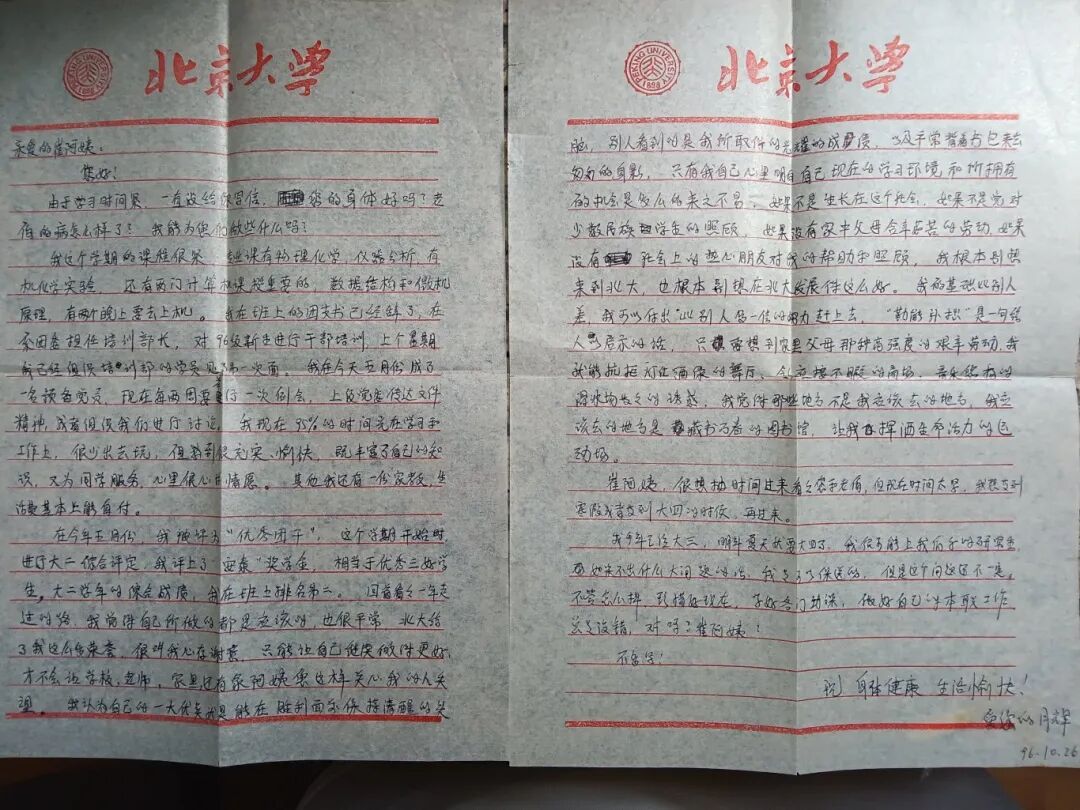 PEKING UNIVERSITY 1898
北京大学
亲爱的崔阿姨：
您好！
由于学习时间紧，一直没给您写信，您的身体好吗？老
的病怎么样了？我能为您们做些什么吗？
我这个学期的课程很紧，专业课有物理化学，仪器分析，有
机化学实验，还有两门计算机课挺重要的，数据结构和微机
原理，有两个晚上要去上机。我在班上的团支书已经卸了，在
系团委担任培训部长，对96级新生进行干部培训，上个星期
我已经组织培训部的学员见第一次面。我在今天五月份成了
一名预备党员，现在每两周要进行一次例会，上级党委传达文件
精神，或者组织我们进行讨论，我现在95%的时间光在学习和
工作上，很少出去玩，但感到很充实、愉快，既丰富了自己的知
识，又为同学服务，心里很心甘情愿。其他我还有一份家教，生
活费基本上能自付。
在今年五月份，我被评为“优秀团干”，这个学期开始时
进行大二综合评定，我评上了奖学金，相当于优秀三好学
生，大二学年的综合成绩，我在班上排名第二。回首看之一年走
过的路，我觉得自己所做的都是应该的，也很平常，北大给
了我这么些荣誉，很叫我心存谢意，只能让自己继续做得更好，
才不会让学校、老师，家里还有象阿姨您这样关心我的人失
望。我认为自己的一大优点就是能在胜利面前保持清醒的头
PEKING UNIVERSITY 1898
北京大学
脑，别人看到的是我所取得的光耀的成绩，以及平常背着书包来去
匆匆的身影，只有我自己心里明白自己现在的学习环境和所拥有
的机会是多么的来之不易，如果不是生长在这个社会，如果不是党对
少数民族学生的照顾，如果没有家中父母含辛茹苦的劳动，如果
没有社会上的热心朋友对我的帮助和照顾，我根本别想
来到北大，也根本别想在北大发展得这么好。我的基础比别人
差，我可以付出比别人多一倍的努力赶上去，“勤能补拙”是一句给
人启示的话，只要想到家里父母那种高强度的艰辛劳动，我
就能抗拒灯红酒绿的舞厅、令应接不暇的商场、音乐悠扬的
溜冰场等之的诱惑，我觉得那些地方不是我应该去的地方，我应
该去的地方是藏书万卷的图书馆，让我挥洒生命活力的运
动场。
崔阿姨，很想抽时间过来看之您和老，但现在时间太紧，我想等到
寒假或者等到大四的时候，再过来。
我今年已经大三，明年夏天就要大四了，我很可能上我们系的研究生，
如果不出什么大问题的话，我是可以保送的，但是这个问题还不一定。
不管怎么样，珍惜好现在，学好各门功课，做好自己的本职工作
总是没错，对吗？崔阿姨！
不多写！
祝 身体健康 生活愉快！
爱您的月
96.10.26